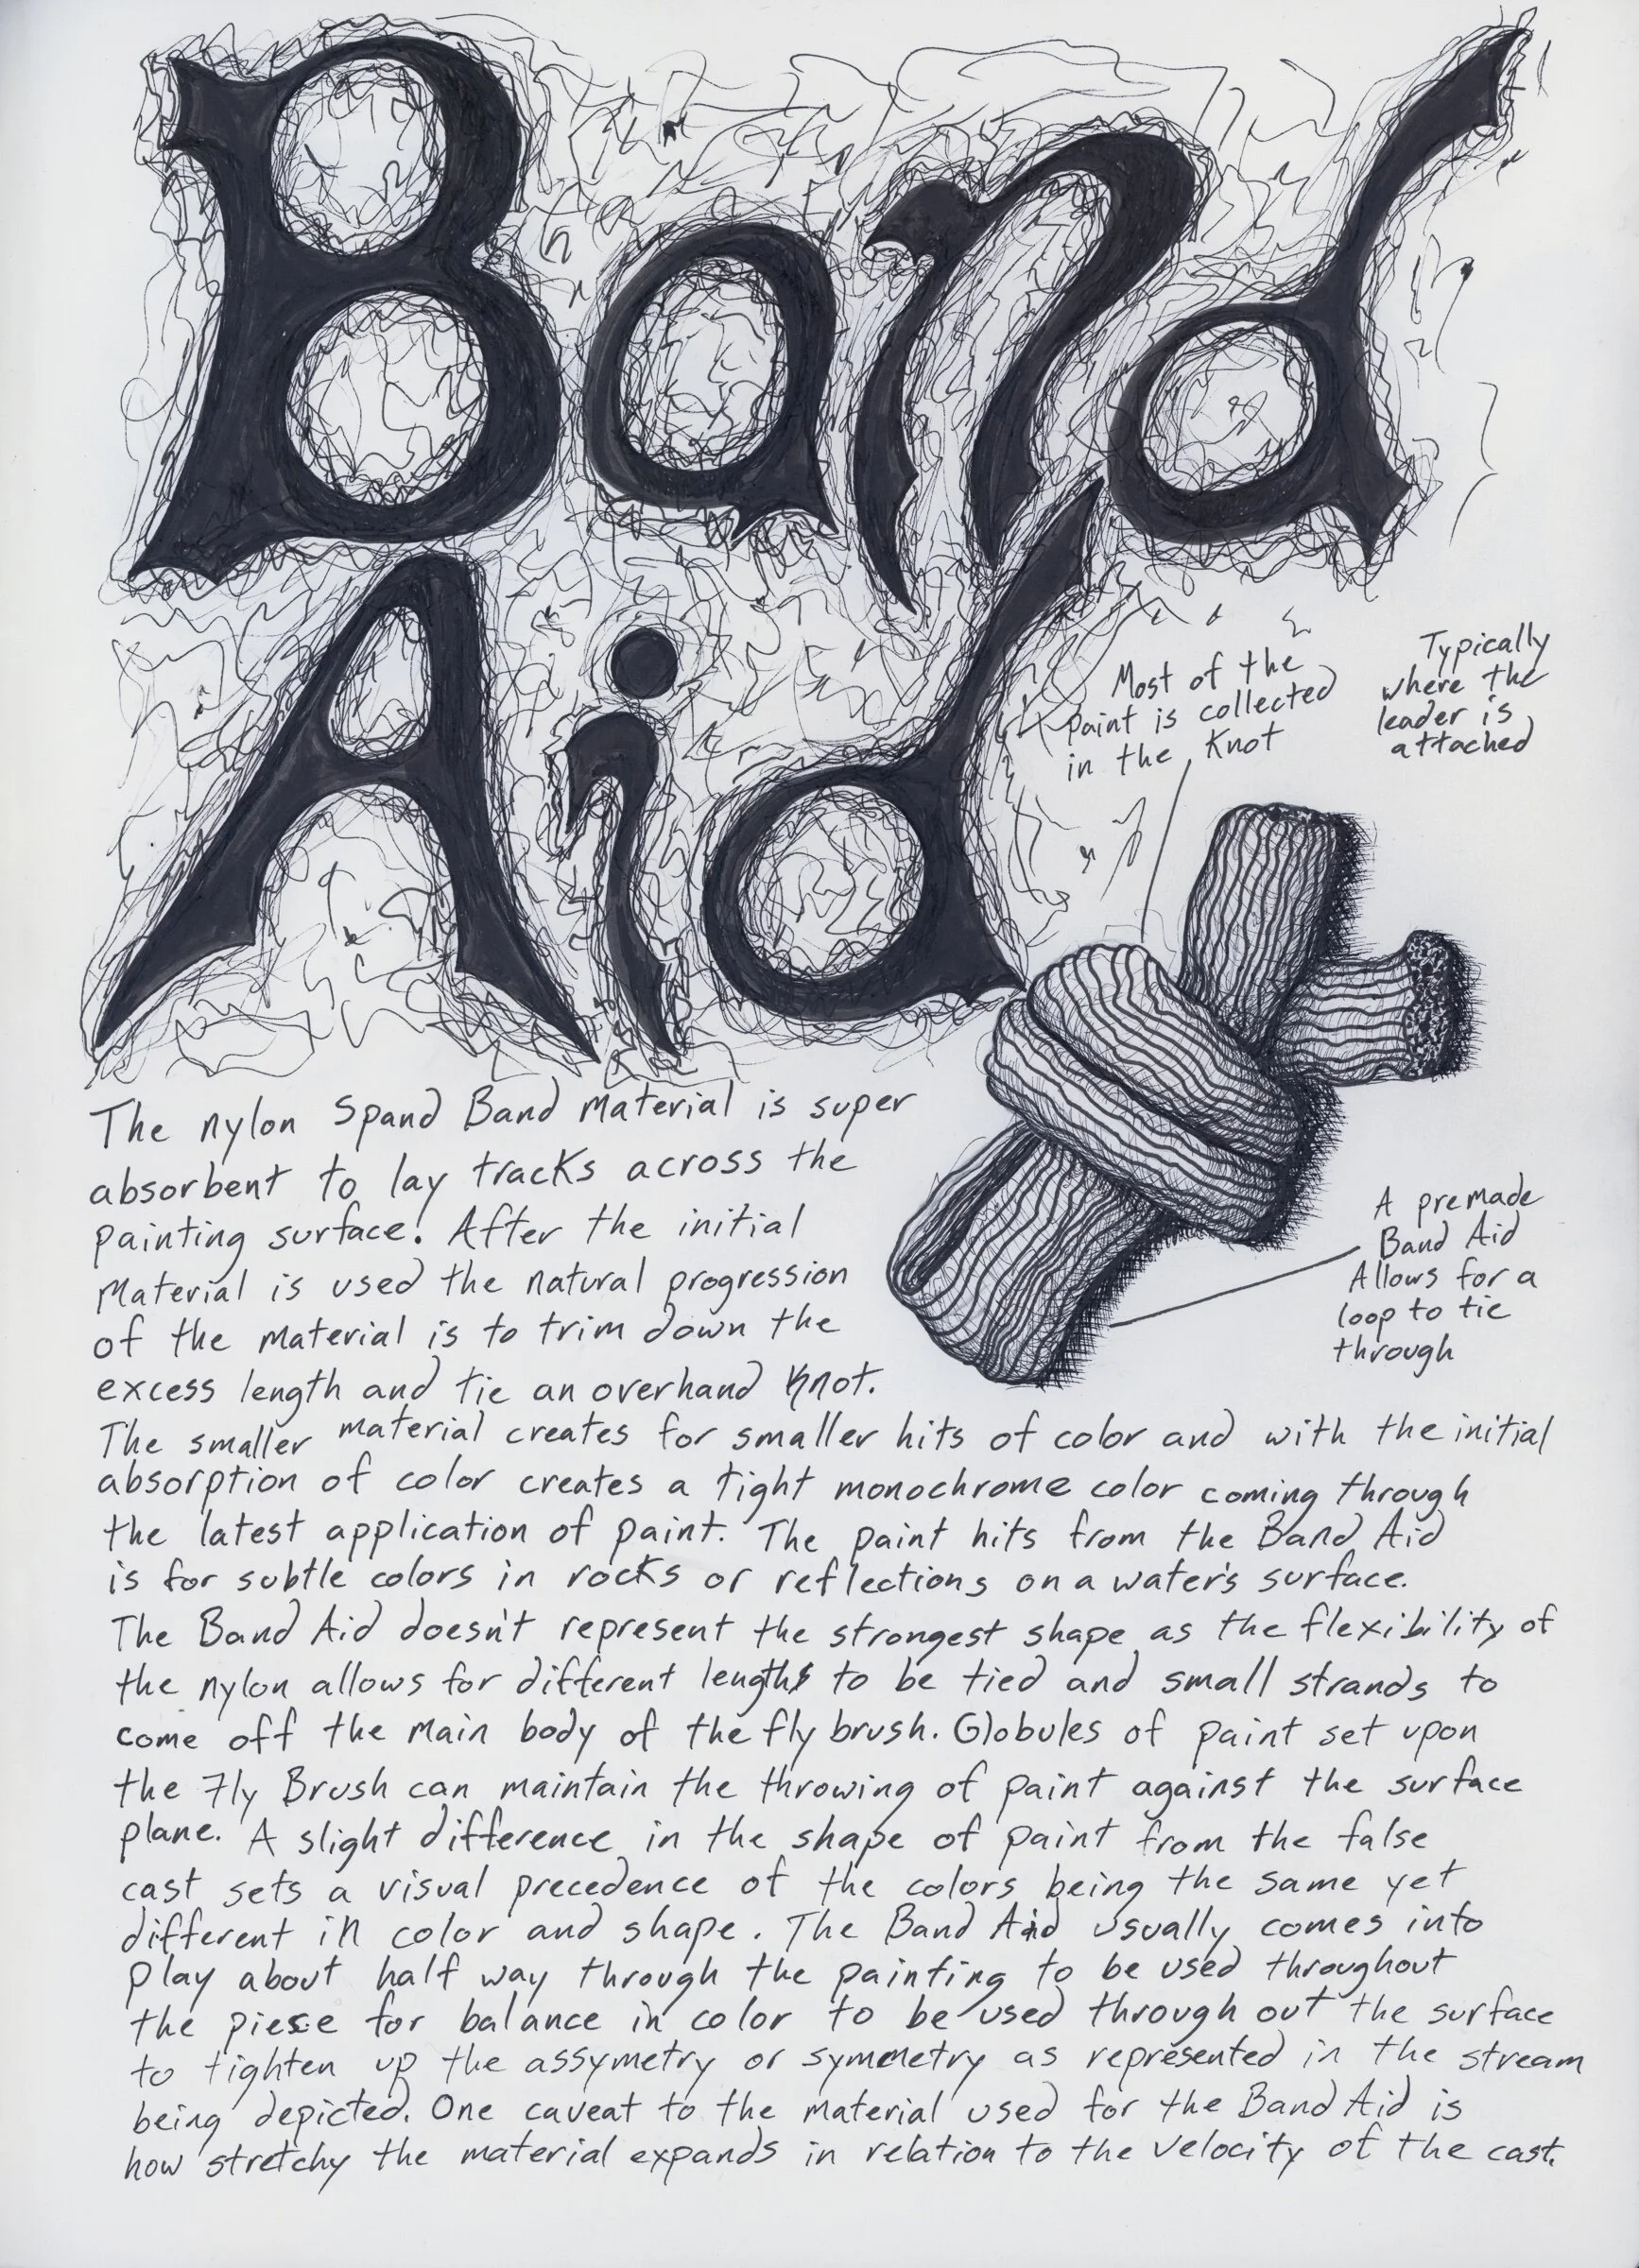 Band
Aid
Most of the
paint is collected
in the Knot
Typically
where the
leader is
attached
A premade
Band Aid
Allows for a
loop to tie
through
The nylon Spand Band Material is super
absorbent to lay tracks across the
painting surface. After the initial
Material is used the natural progression
of the material is to trim down the
excess length and tie an overhand Knot.
The smaller material creates for smaller hits of color and with the initial
absorption of color creates a tight monochrome color coming through
the latest application of paint. The paint hits from the Band Aid
is for subtle colors in rocks or reflections on a water's surface.
The Band Aid doesn't represent the strongest shape as the flexibility of
the nylon allows for different lengths to be tied and small strands to
come off the main body of the fly brush. Globules of paint set upon
the Fly Brush can maintain the throwing of paint against the surface
plane. A slight difference in the shape of paint from the false
cast sets a visual precedence of the colors being the same yet
different in color and shape. The Band Aid usually comes into
play about half way through the painting to be used throughout
the piece for balance in color to be used through out the surface
to tighten up the assymetry or symmetry as represented in the stream
being depicted. One caveat to the material used for the Band Aid is
how stretchy the material expands in relation to the velocity of the cast.